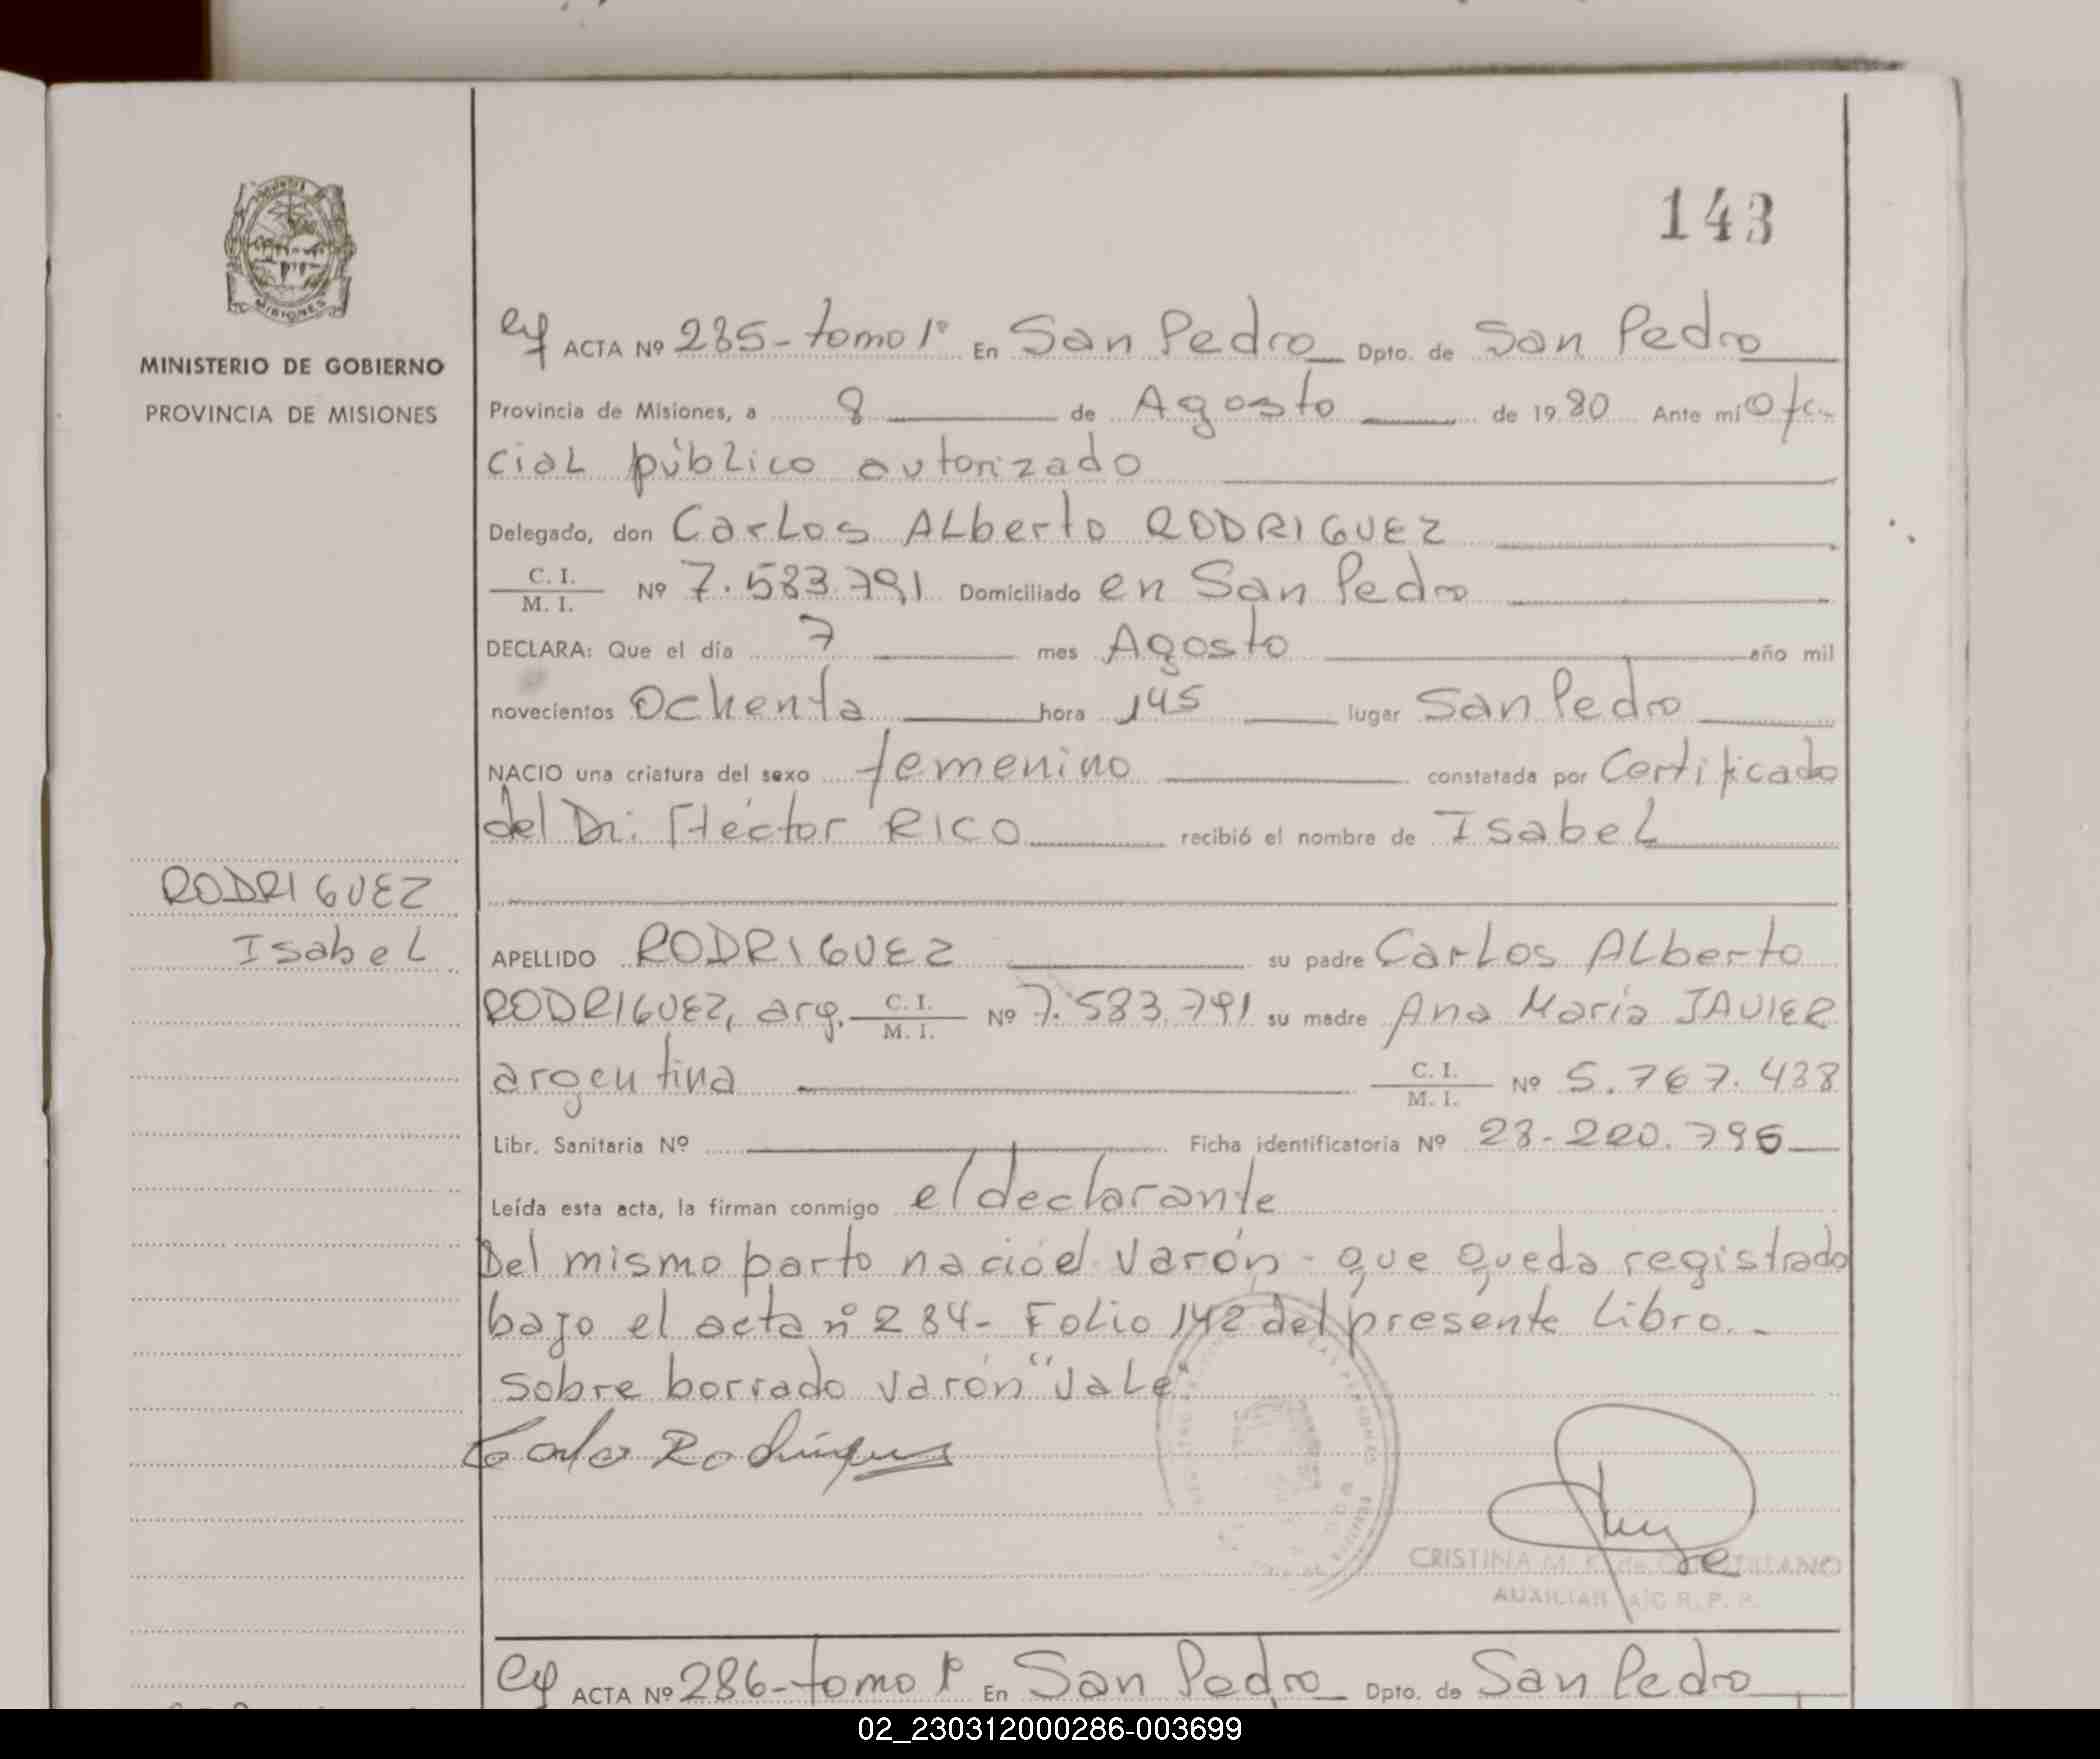 143
MINISTERIO DE GOBIERNO
PROVINCIA DE MISIONES
ACTA Nº 285-tomo 1º En San Pedro Dpto. de San Pedro
Provincia de Misiones, a 8 de Agosto de 1980 Ante mi Ofi-
cial público autorizado
Delegado, don Carlos Alberto RODRIGUEZ
C. I.
M. I. Nº 7.583.791 Domiciliado en San Pedro
DECLARA: Que el día 7 mes Agosto año mil
novecientos Ochenta hora 145 lugar San Pedro
NACIO una criatura del sexo femenino constatada por Certificado
del Dr. Héctor RICO recibió el nombre de Isabel
RODRIGUEZ
Isabel
APELLIDO RODRIGUEZ su padre Carlos Alberto
RODRIGUEZ, arg. C. I.
M. I. Nº 7.583.791 su madre Ana María JAVIER
argentina C. I.
M. I. Nº 5.767.438
Libr. Sanitaria Nº Ficha identificatoria Nº 28-220.796
Leída esta acta, la firman conmigo el declarante
Del mismo parto nació el varón - que queda registrado
bajo el acta nº 284- Folio 142 del presente Libro.-
Sobre borrado varón "vale"
Carlos Rodríguez
CRISTINA M. K. de
AUXILIAR A/C R. P. P.
ACTA Nº 286-tomo 1º En San Pedro Dpto. de San Pedro
02_230312000286-003699